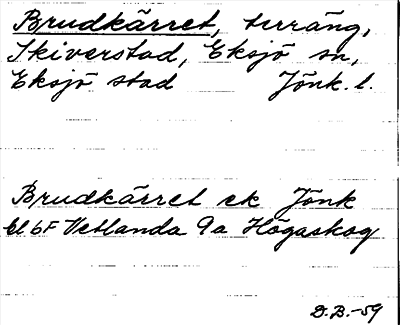 Brudkärret, terräng,
Skiverstad, Eksjö sn,
Eksjö stad Jönk. l.
Brudkärret ek Jönk
bl 6F Vetlanda 9a Högaskog
D.B.-59